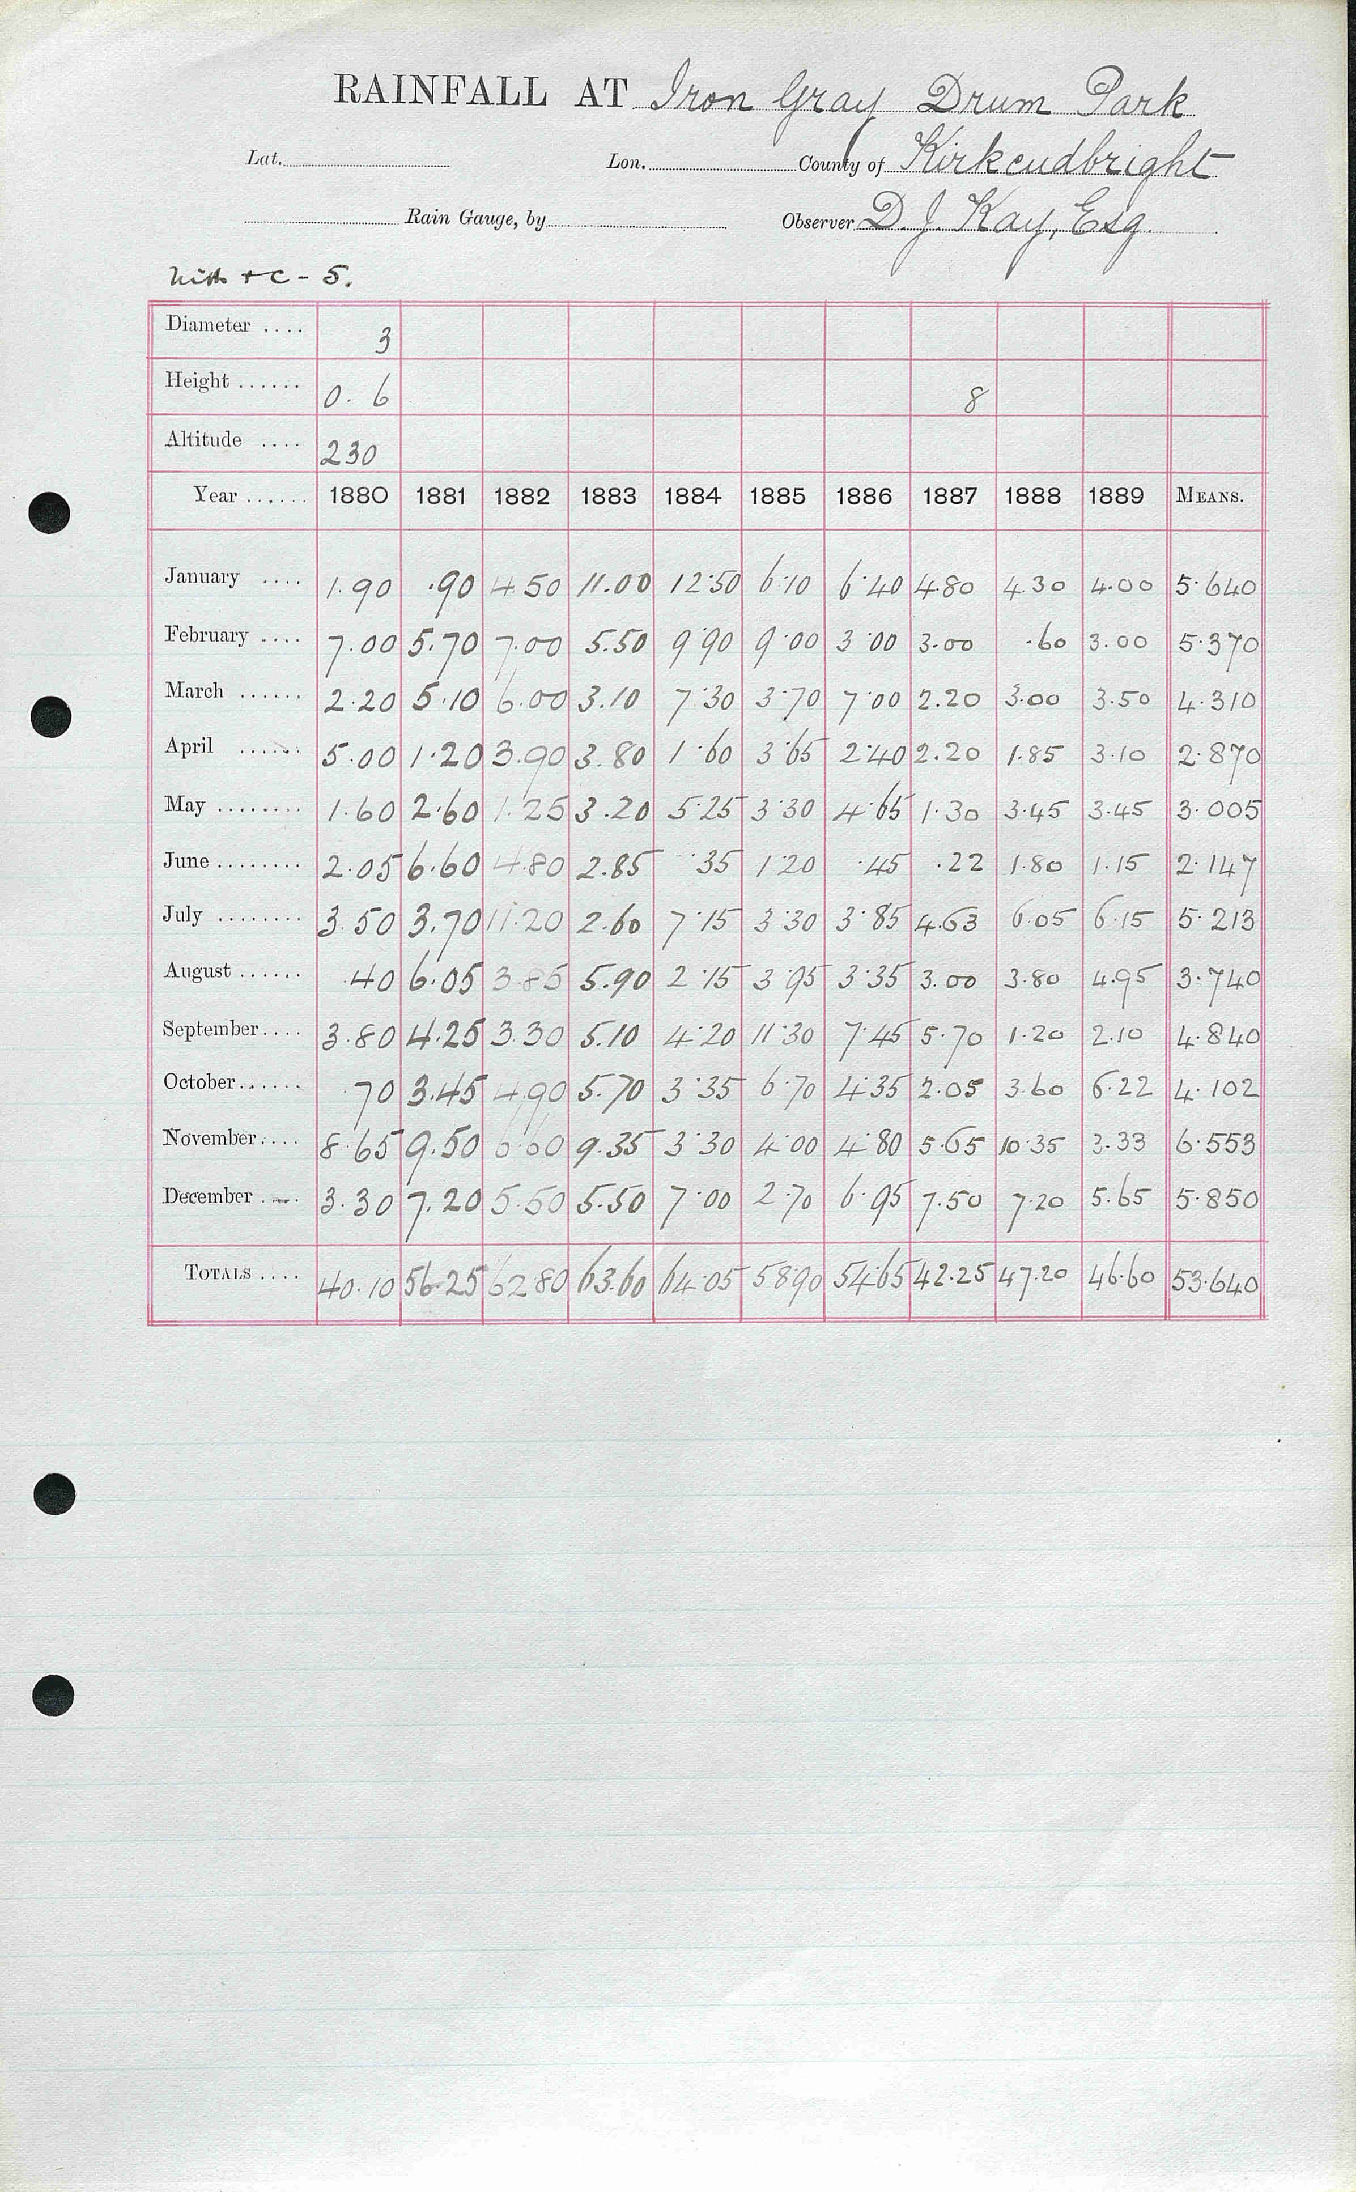 RAINFALL AT Iron Gray Drum Park
Lat. Lon. County of Kirkcudbright
Rain Gauge, by Observer D. J. Kay, Esq.
Nith + C - 5.
Diameter .... 3
Height ...... 0. 6 8
Altitude .... 230
Year ...... 1880 1881 1882 1883 1884 1885 1886 1887 1888 1889 MEANS.
January .... 1.90 .90 4.50 11.00 12.50 6.10 6.40 4.80 4.30 4.00 5.640
February .... 7.00 5.70 7.00 5.50 9.90 9.00 3.00 3.00 .60 3.00 5.370
March ...... 2.20 5.10 6.00 3.10 7.30 3.70 7.00 2.20 3.00 3.50 4.310
April ...... 5.00 1.20 3.90 3.80 1.60 3.65 2.40 2.20 1.85 3.10 2.870
May ........ 1.60 2.60 1.25 3.20 5.25 3.30 4.65 1.30 3.45 3.45 3.005
June ........ 2.05 6.60 4.80 2.85 .35 1.20 .45 .22 1.80 1.15 2.147
July ........ 3.50 3.70 11.20 2.60 7.15 3.30 3.85 4.63 6.05 6.15 5.213
August ...... .40 6.05 3.85 5.90 2.15 3.95 3.35 3.00 3.80 4.95 3.740
September .... 3.80 4.25 3.30 5.10 4.20 11.30 7.45 5.70 1.20 2.10 4.840
October ...... .70 3.45 4.90 5.70 3.35 6.70 4.35 2.05 3.60 6.22 4.102
November .... 8.65 9.50 6.60 9.35 3.30 4.00 4.80 5.65 10.35 3.33 6.553
December .... 3.30 7.20 5.50 5.50 7.00 2.70 6.95 7.50 7.20 5.65 5.850
TOTALS .... 40.10 56.25 62.80 63.60 64.05 58.90 54.65 42.25 47.20 46.60 53.640